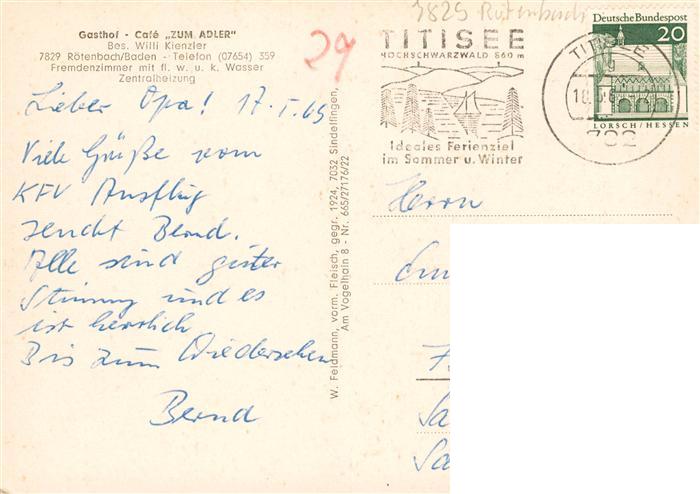 7829 Rötenbach
Gasthof - Café „ZUM ADLER"
Bes. Willi Kienzler
7829 Rötenbach/Baden - Telefon (07654) 359
Fremdenzimmer mit fl. w. u. k. Wasser
Zentralheizung
29
TITISEE
HOCHSCHWARZWALD 860 m
Ideales Ferienziel
im Sommer u. Winter
TITISEE
18.5.6
782
Deutsche Bundespost
20
LORSCH/HESSEN
Lieber Opa! 17.5.69
Viele Grüße vom
KFV Ausflug
sendet Bernd.
Alle sind guter
Stimmung und es
ist herrlich
Bis zum Wiedersehen
Bernd
W. Feldmann, vorm. Fleisch, gegr. 1924, 7032 Sindelfingen,
Am Vogelhain 8 - Nr. 665/27176/22
Herrn